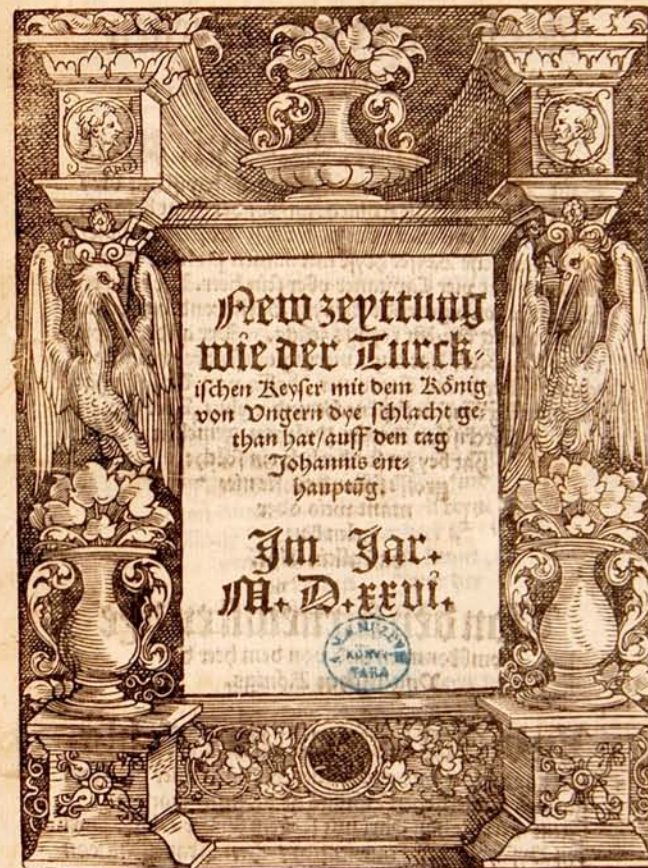 New zeyttung
wie der Turck-
ischen Keyser mit dem König
von Vngern dye schlacht ge-
than hat/auff den tag
Johannis ent-
hauptūg.
Im Jar.
M. D. xxvi.
KÖNYV-
TARA